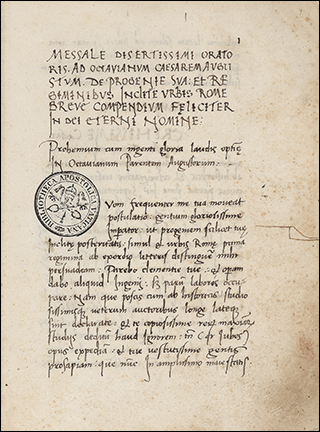 1
MESSALE DISERTISSIMI ORATO
RIS. AD OCTAVIANUM CAESAREM AVGUS
TVM. DE PROGENIE SVA: ET RE
GIMINIBUS INCLITE URBIS ROME
BREVE COMPENDIUM FELICITER
IN DEI ETERNI NOMINE:
Prohemium cum ingenti gloria laudis
IN Octavianum Parentem Augustorum.
BIBLIOTHECA APOSTOLICA VATICANA
Vom frequenter me tua moveat
postulatio gentum gloriosissime
ut progeniem scilicet tuam
posteritatis. simul et urbis Rome
regimina ab exordio literis
persuadeam. Parebo clementie tue.
dabo aliquid Ingenij. parum laboris
pare. Nam que poscis cum ab historicis studio
veterum auctoribus longe
sint declarata. et te copiosissime
studijs deditum haud Ignorem.
opus expediam. et tue vetustissime gentis
prosapiam. que nunc In amplissimis